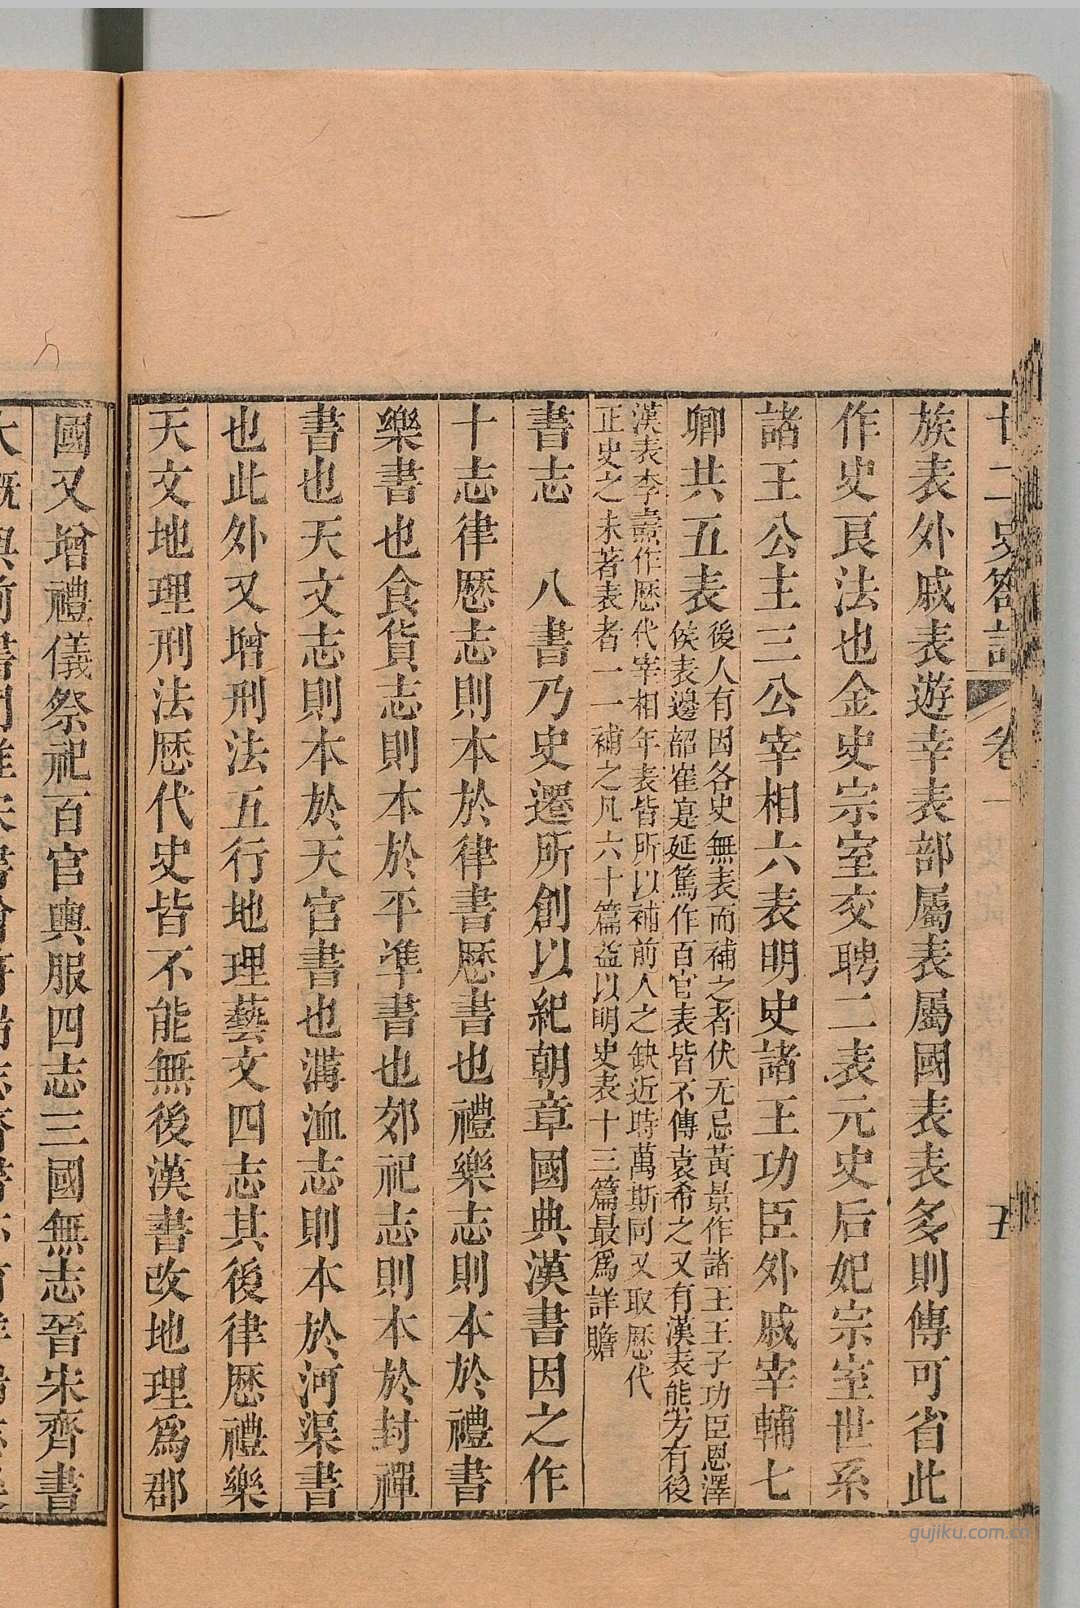 廿二史劄記 卷二 五
族表外戚表遊幸表部屬表屬國表表多則傳可省此
作史良法也金史宗室交聘二表元史后妃宗室世系
諸王公主三公宰相六表明史諸王功臣外戚宰輔七
卿共五表
後人有因各史無表而補之者伏无忌黃景作諸王王子功臣恩澤
侯表邊韶崔寔延篤作百官表皆不傳袁希之又有漢表熊方有後
漢表李燾作歷代宰相年表皆所以補前人之缺近時萬斯同又取歷代
正史之未著表者一一補之凡六十篇益以明史表十三篇最爲詳贍
書志 八書乃史遷所創以紀朝章國典漢書因之作
十志律歷志則本於律書歷書也禮樂志則本於禮書
樂書也食貨志則本於平準書也郊祀志則本於封禪
書也天文志則本於天官書也溝洫志則本於河渠書
也此外又增刑法五行地理藝文四志其後律歷禮樂
天文地理刑法歷代史皆不能無後漢書改地理爲郡
國又增禮儀祭祀百官輿服四志三國無志晉宋齊書
gujiku.com